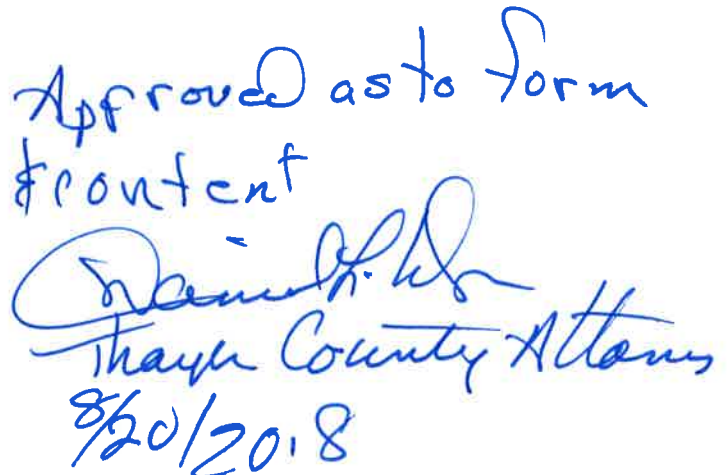 Approved as to form
& content
Daniel L.
Thayer County Attorney
8/20/2018